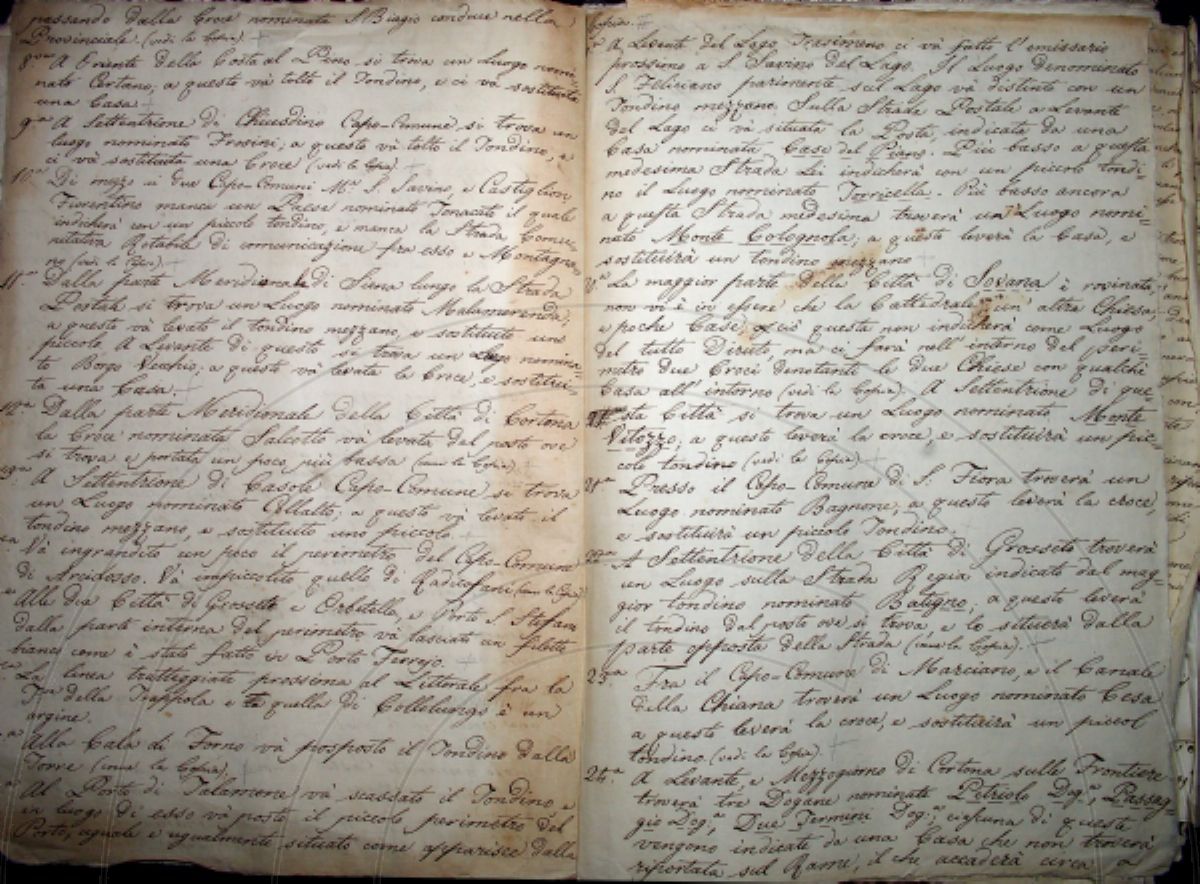 passando dalla Croce nominata S. Biagio conduce nella
Provinciale. (vedi la Copia).
A Oriente della Costa al Pino si trova un Luogo nomi=
nato Certano, a questo và tolto il Tondino, e ci và sostituita
una Casa.
9.na A Settentrione di Chiusdino Capo-Comune si trova un
luogo nominato Frosini, a questo và tolto il Tondino, e
ci và sostituita una Croce (vedi la Copia).
10.a Di mezzo ai due Capo-Comuni M.te S. Savino, e Castiglion
Fiorentino manca un Paese nominato Tonacato il quale
indicherà con un piccolo tondino, e manca la Strada Comu=
nitativa Rotabile di comunicazione fra esso e Montagna=
no (vedi la Copia).
11.a Dalla parte Meridionale di Siena lungo la Strada
Postale si trova un Luogo nominato Malamerenda;
a questo và levato il tondino mezzano, e sostituito uno
piccolo. A Levante di questo si trova un Luogo nomina=
to Borgo Vecchio; a questo và levata la Croce, e sostitui=
ta una Casa.
12.a Dalla parte Meridionale della Città di Cortona
la Croce nominata Salcotto và levata dal posto ove
si trova e portata un poco più bassa (come la Copia).
13.a A Settentrione di Casole Capo-Comune si trova
un Luogo nominato Collalto; a questo và levato il
tondino mezzano, e sostituito uno piccolo.
Và ingrandito un poco il perimetro del Capo-Comune
di Arcidosso. Và impiccolito quello di Radicofani (come la Copia)
Alle due Città di Grosseto e Orbitello, e Porto S. Stefano
dalla parte interna del perimetro và lasciato un filetto
bianco come è stato fatto in Porto Ferrajo.
La linea tratteggiata prossima al Littorale fra la
T.ra della Trappola e quella di Collelungo è un
argine.
Alla Cala di Forno và posposto il Tondino dalla
Torre (come la Copia).
Al Porto di Talamone và scassato il Tondino, e
in luogo di esso và posto il piccolo perimetro del
Porto, uguale e ugualmente situato come apparisce dalla
Copia.
A Levante del Lago Trasimeno ci và fatto l'emissario
prossimo a S. Savino del Lago. Il Luogo denominato
S. Feliciano parimente sul Lago và distinto con un
Tondino mezzano. Sulla Strada Postale a Levante
del Lago ci và situata la Posta, indicata da una
Casa nominata Case del Piano. Più basso a questa
medesima Strada Lei indicherà con un piccolo tondi=
no il Luogo nominato Torricella. Più basso ancora
a questa Strada medesima troverà un Luogo nomi=
nato Monte Colognola; a questo leverà la Casa, e
sostituirà un tondino mezzano
La maggior parte della Città di Sovana è rovinata,
non vi è in essere che la Cattedrale, un altra Chiesa,
e poche Case, Perciò questa non indicherà come Luogo
del tutto Diruto, ma ci farà nell'interno del peri=
metro due Croci denotante le due Chiese con qualche
Casa all'intorno (vedi la Copia). A Settentrione di que=
sta Città si trova un Luogo nominato Monte
Vitozzo, a questo leverà la croce, e sostituirà un pic=
colo tondino (vedi la Copia).
21.a Presso il Capo-Comune di S. Fiora troverà un
Luogo nominato Bagnone, a questo leverà la croce,
e sostituirà un piccolo Tondino.
22.a A Settentrione della Città di Grosseto troverà
un Luogo sulla Strada Regia indicato dal mag=
gior tondino nominato Batigno; a questo leverà
il tondino dal posto ove si trova e lo situerà dalla
parte opposta della Strada (come la Copia).
23.a Fra il Capo-Comune di Marciano, e il Canale
della Chiana troverà un Luogo nominato Cesa
a questo leverà la croce, e sostituirà un piccol
tondino (vedi la Copia).
24.a A Levante, e Mezzogiorno di Cortona sulla Frontiera
troverà tre Dogane nominate Petriolo Dog.a, Passag=
gio Dog.a, Due Termini Dog.a; ciascuna di queste
vengono indicate da una Casa che non troverà
riportata sul Rame, il che accaderà circa a